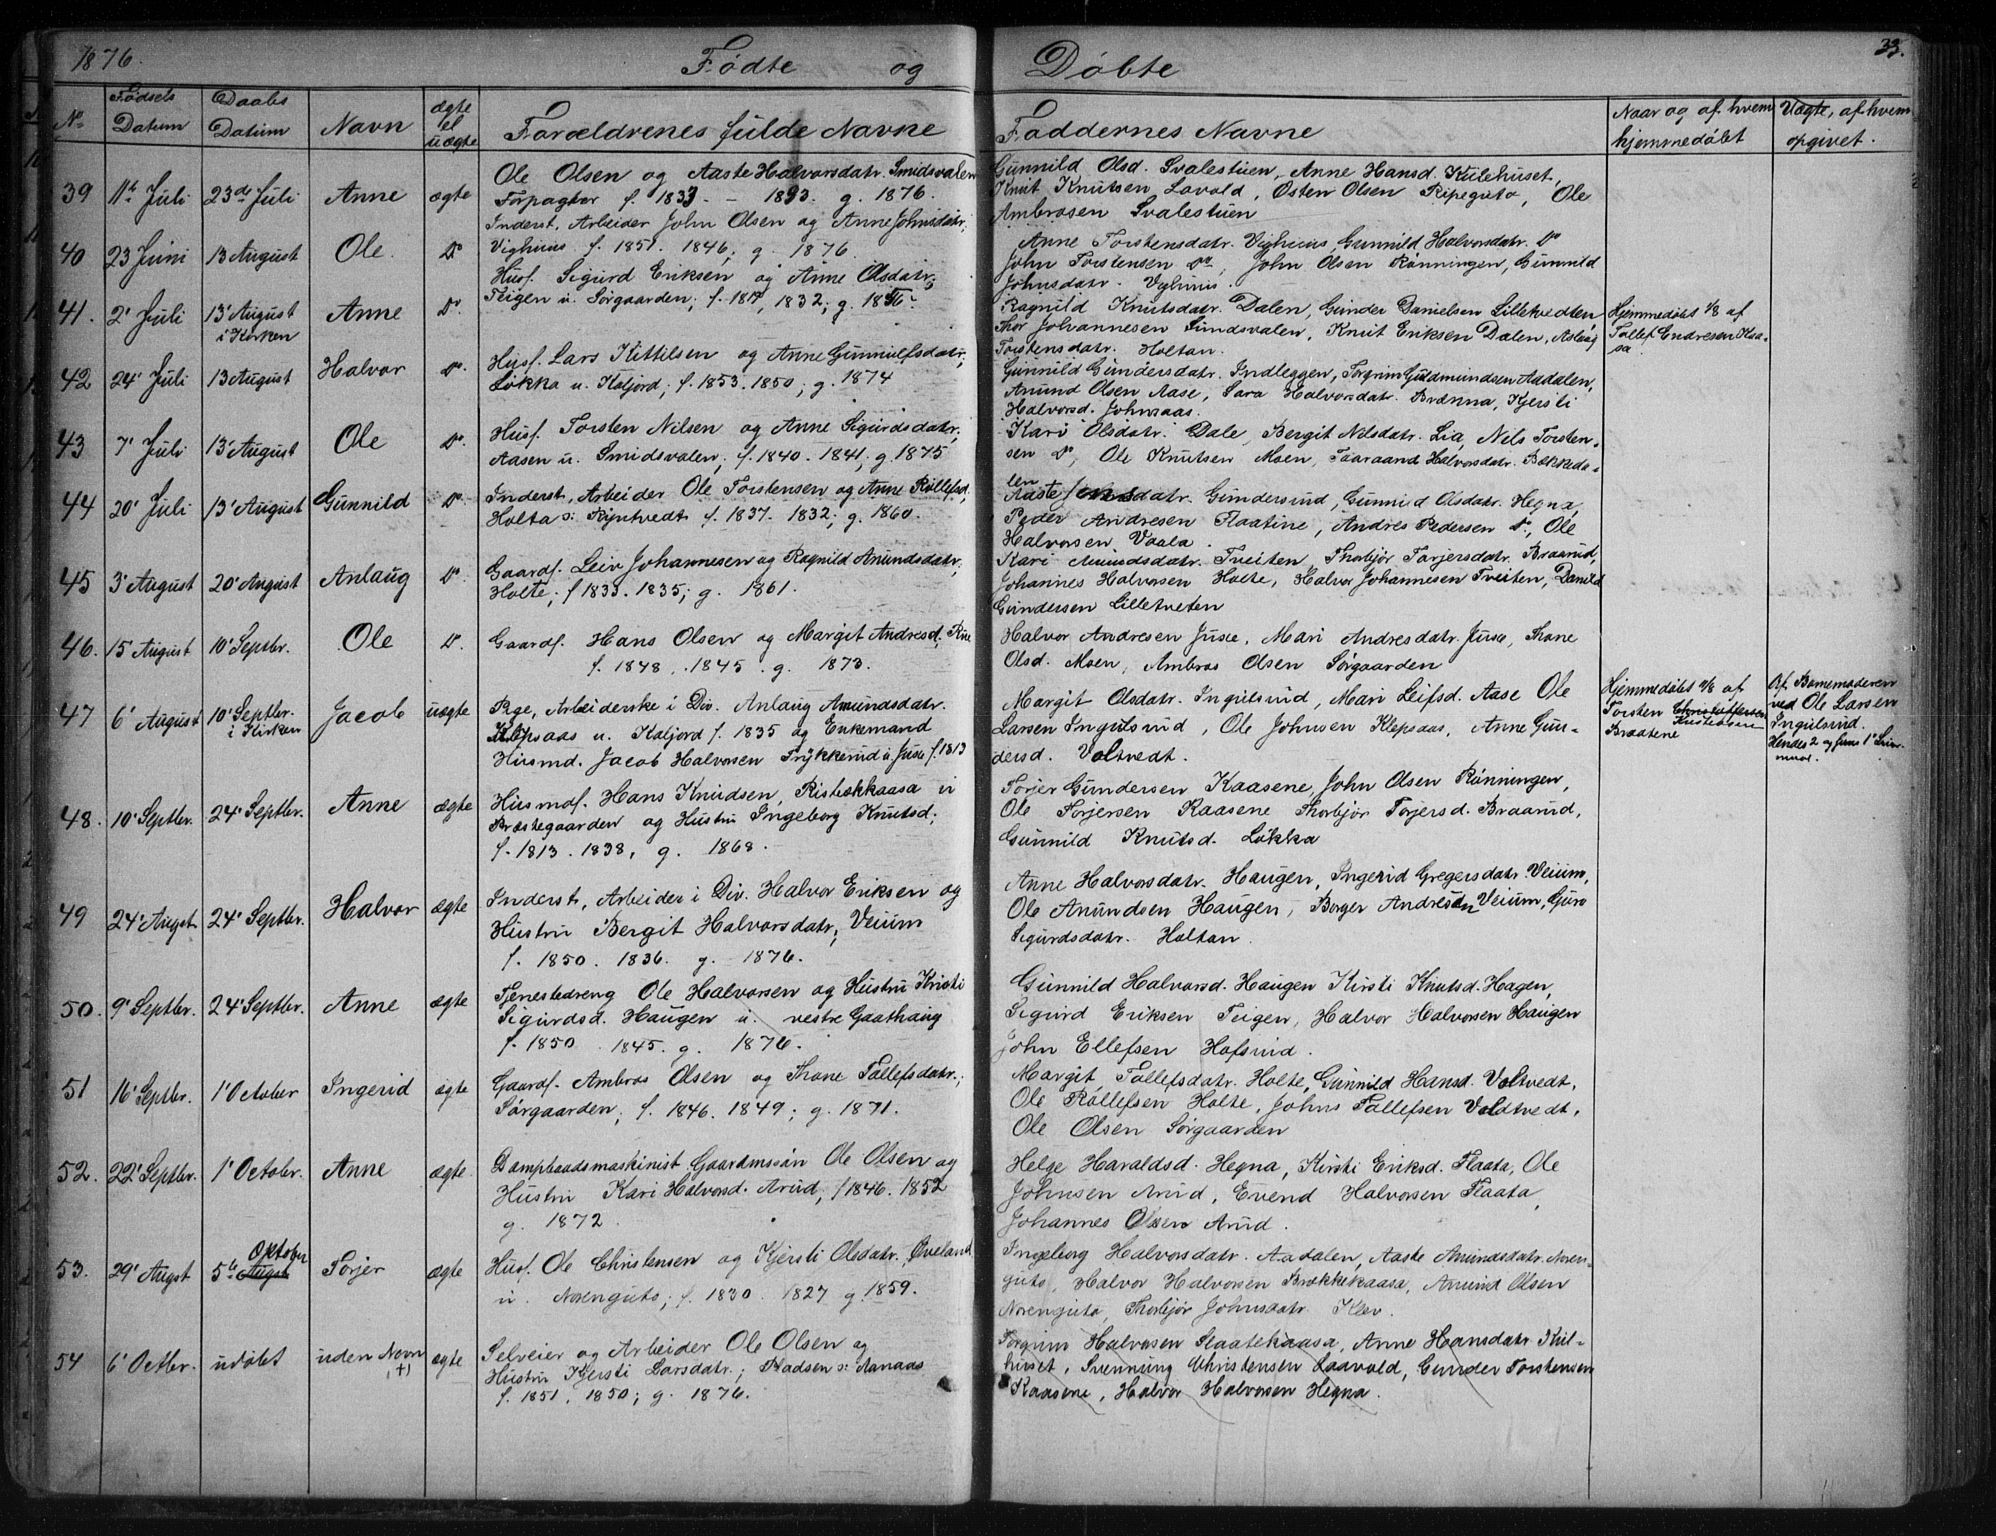 1876.
Fødte og Døbte
33.
No
Fødsels Datum
Daabs Datum
Navn
ægte el uægte
Forældrenes fulde Navne
Faddernes Navne
Naar og af hvem hjemmedøbt
Uægte, af hvem opgivet.
39 11te Juli 23de Juli Anne ægte
Ole Olsen og Aaste Halvorsdatr. Smidsvalen
Forpagter f. 1833 - 1853. g. 1876.
Gunnild Olsd. Svalestuen, Anne Hansd. Kulehuset,
Knut Knutsen Lovold, Østen Olsen Ripeguto, Ole
Ambrosen Svalestuen
40 23 Juni 13 August Ole Do
Inderst, Arbeider John Olsen og Anne Johnsdatr.
Vighuus f. 1851. 1846, g. 1876.
Anne Torstensdatr. Vighuus, Gunnild Halvorsdatr. Do
John Torstensen Do, John Olsen Rønningen, Gunnild
Johnsdatr. Vighuus.
41. 2' Juli 13' August i Kirken Anne Do.
Husf. Sigurd Eriksen og Anne Olsdatr.
Teigen u. Sørgaarden; f. 1817, 1832; g. 1856.
Ragnild Knutsdatr. Dalen, Gunder Danielsen Lilletvedten
Thor Johannesen Smidsvalen, Knut Eriksen Dalen, Aslaug
Torstensdatr. Holtan.
Hjemmedøbt 1/8 af
Tollef Endresen Kaa-
sa.
42 24' Juli 13 August Halvor Do.
Husf. Lars Kittilsen og Anne Gunnulfsdatr.
Løkka u. Kaljord; f. 1853. 1850; g. 1874
Gunnild Gundersdatr. Indleggen, Torgrim Guldmundsen Aadalen,
Anund Olsen Aase, Sara Halvorsdatr. Brænna, Kjersti
Halvorsd. Johnsaas.
43 7' Juli 13' August Ole Do.
Husf. Torsten Nilsen og Anne Sigurdsdatr.
Aasen u. Smidsvalen; f. 1840. 1841, g. 1875
Kari Olsdatr. Dale, Bergit Nilsdatr. Lia, Nils Torsten-
sen Do, Ole Knutsen Moen, Taaraand Halvorsdatr. Bækkeda-
len
44 20' Juli 13' August Gunnild Do
Inderst, Arbeider Ole Torstensen og Anne Rollefsd.
Holta f. 1837. 1832; g. 1860.
Aaste datr. Gundersrud, Gunnild Olsdatr. Hegna,
Peder Andresen Flaatine, Andres Pedersen Do, Ole
Halvorsen Vaala.
45 3' August 20' August Anlaug Do.
Gaardf. Leiv Johannesen og Ragnild Anundsdatr.
Holte; f 1833. 1835; g. 1861.
Kari Anundsdatr. Tveiten, Thorbjør Torjersdatr. Braarud,
Johannes Halvorsen Holte, Halvor Johannesen Tveiten, Daniel
Gundersen Lilletveten
46. 15' August 10' Septbr. Ole Do.
Gaardf. Hans Olsen og Margit Andresd.
f. 1848. 1845 g. 1873.
Halvor Andresen Juse, Mari Andresdatr. Juse, Thone
Olsd. Moen, Ambros Olsen Sørgaarden
47 6' August 10' Septbr. i Kirken Jacob uægte
Pge, Arbeiderske i Div. Anlaug Amundsdatr.
Klepsaas u. Kaljord f. 1835 og Enkemand
Husmd. Jacob Halvorsen Trykkerud u. Juse f. 1813
Margit Olsdatr. Ingulsrud, Mari Leifsd. Aase Ole
Larsen Ingulsrud, Ole Johnsen Klepsaas, Anne Gun-
dersd. Voltvedt.
Hjemmedøbt 9/8 af
Torsten Christoffersen
Kristiansen
Braatene
Af Barnemoderen
ved Ole Larsen
Ingulsrud.
Hendes 2 og hans 1' Leier-
maal.
48. 10' Septbr. 24' Septbr. Anne ægte
Husmdf. Hans Knudsen, Risbækkaasa u
Præstegaarden og Hustru Ingeborg Knutsd;
f. 1813. 1838, g. 1868.
Torjer Gundersen Kaasene, John Olsen Rønningen,
Ole Torjersen Kaasene Thorbjør Torjersd. Braarud,
Gunnild Knutsd. Løkka
49 24' Augst 24' Septbr. Halvor ægte
Inderst, Arbeider i Div. Halvor Eriksen og
Hustru Bergit Halvorsdatr; Veium
f. 1850. 1836. g. 1876.
Anne Halvorsdatr. Haugen, Ingerid Gregersdatr. Veium,
Ole Anundsen Haugen, Borger Andresen Veium, Guro
Sigurdsdatr. Holtan.
50. 9' Septbr. 24' Septbr. Anne ægte
Tjenestedreng Ole Halvorsen og Hustru Kristi
Sigurdsd. Haugen u. vestre Gaathaug
f. 1850. 1845. g. 1876.
Gunnild Halvorsd. Haugen Kirsti Knutsd. Hagen,
Sigurd Eriksen Teigen, Halvor Halvorsen Haugen
John Ellefsen Hofsrud.
51 16' Septbr. 1' October Ingerid ægte
Gaardf. Ambros Olsen og Thone Tollefsdatr.;
Sørgaarden; f. 1846. 1849; g. 1871.
Margit Tollefsdatr. Holte, Gunnild Hansd. Voltvedt.
Ole Rollefsen Holte, Johns Tollefsen Voldtvedt,
Ole Olsen Sørgaarden
52. 22' Septbr. 1' Octobr. Anne ægte
Dampbaadsmaskinist Gaardmssøn Ole Olsen og
Hustru Kari Halvorsd. Arud, f 1846. 1852
g. 1872.
Helge Haraldsd. Hegna, Kirsti Eriksd. Flaata, Ole
Johnsen Arud, Evend Halvorsen Flaata,
Johannes Olsen Arud.
53. 29' Augst 5te Augst Oktober Torjer ægte
Husf. Ole Christensen og Kjersti Olsdatr. Øveland
u. Norenguto; f. 1830. 1827 g. 1859.
Ingeborg Halvorsdatr. Aadalen, Aaste Anundsdatr. Noren-
guto, Halvor Halvorsen Brækkekaasa, Anund Olsen
Norenguto, Thorbjør Johnsdatr. Klev.
54 6' Octbr. udøbt uden Navn +) ægte
Selveier og Arbeider Ole Olsen og
Hustru Kjersti Larsdatr.; Aanaas
f. 1851. 1850; g. 1876.
Torgrim Halvorsen Slaatekaasa, Anne Hansdatr. Kul-
huset, Svennung Christensen Laavold, Gunder Torstensen
Kaasene, Halvor Halvorsen Hegna.